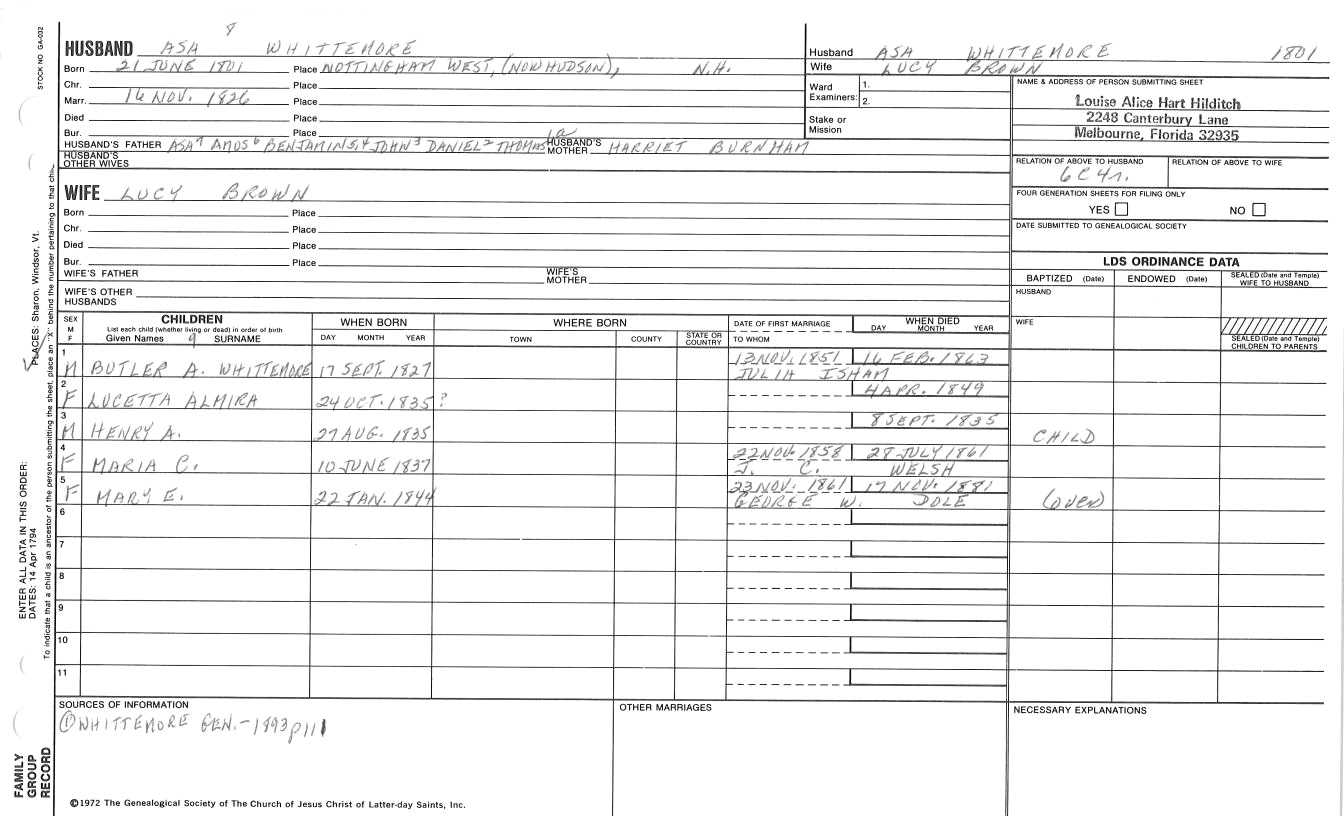 8
STOCK NO GA-032
HUSBAND ASA WHITTEMORE
Born 21 JUNE 1801 Place NOTTINGHAM WEST, (NOW HUDSON), N.H.
Chr. Place
Marr. 16 NOV. 1826 Place
Died Place
Bur. Place
HUSBAND'S FATHER ASA7 AMOS6 BENJAMIN5,4 JOHN3 DANIEL2 THOMAS 1a HUSBAND'S MOTHER HARRIET BURNHAM
HUSBAND'S OTHER WIVES
WIFE LUCY BROWN
Born Place
Chr. Place
Died Place
Bur. Place
WIFE'S FATHER WIFE'S MOTHER
WIFE'S OTHER HUSBANDS
Husband ASA WHITTEMORE 1801
Wife LUCY BROWN
Ward Examiners: 1. 2.
Stake or Mission
NAME & ADDRESS OF PERSON SUBMITTING SHEET
Louise Alice Hart Hilditch
2248 Canterbury Lane
Melbourne, Florida 32935
RELATION OF ABOVE TO HUSBAND RELATION OF ABOVE TO WIFE
6C4r.
FOUR GENERATION SHEETS FOR FILING ONLY
YES NO
DATE SUBMITTED TO GENEALOGICAL SOCIETY
LDS ORDINANCE DATA
BAPTIZED (Date) ENDOWED (Date) SEALED (Date and Temple) WIFE TO HUSBAND
HUSBAND
WIFE
SEALED (Date and Temple) CHILDREN TO PARENTS
SEX M F CHILDREN WHEN BORN WHERE BORN DATE OF FIRST MARRIAGE WHEN DIED
List each child (whether living or dead) in order of birth
Given Names 9 SURNAME DAY MONTH YEAR TOWN COUNTY STATE OR COUNTRY TO WHOM DAY MONTH YEAR
1 13 NOV. 1851 16 FEB. 1863
M BUTLER A. WHITTEMORE 17 SEPT. 1827 JULIA ISHAM
2 4 APR. 1849
F LUCETTA ALMIRA 24 OCT. 1835?
3 8 SEPT. 1835
M HENRY A. 27 AUG. 1835 CHILD
4 22 NOV. 1858 28 JULY 1861
F MARIA C. 10 JUNE 1837 J. C. WELSH
5 23 NOV. 1861 17 NOV. 1881
F MARY E. 22 JAN. 1844 GEORGE W. DOLE (OVER)
6
7
8
9
10
11
SOURCES OF INFORMATION OTHER MARRIAGES NECESSARY EXPLANATIONS
① WHITTEMORE GEN. - 1893 p111
©1972 The Genealogical Society of The Church of Jesus Christ of Latter-day Saints, Inc.
FAMILY GROUP RECORD
ENTER ALL DATA IN THIS ORDER:
DATES: 14 Apr 1794
PLACES: Sharon, Windsor, Vt.
To indicate that a child is an ancestor of the person submitting the sheet, place an "X" behind the number pertaining to that